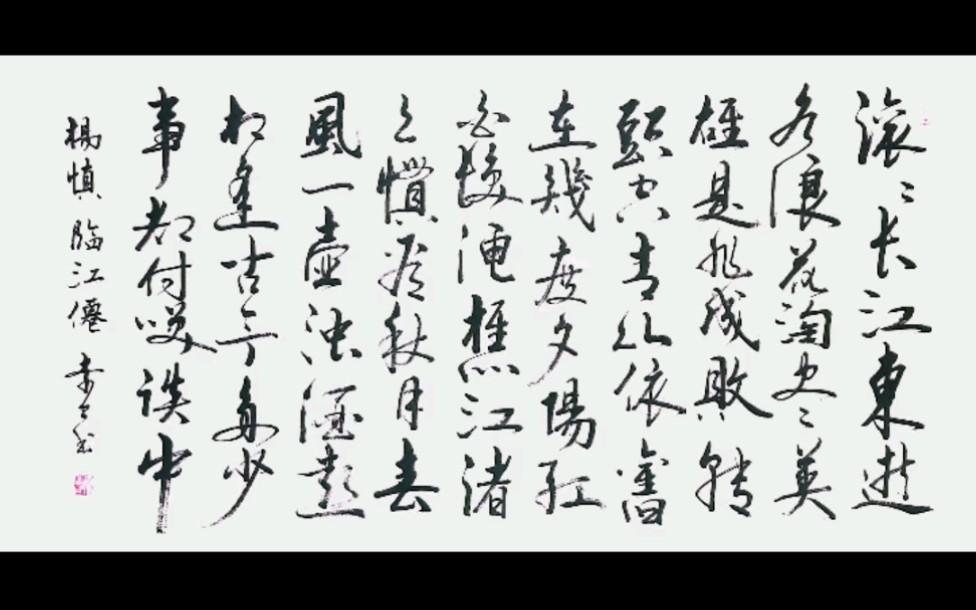 滚〻长江東逝
水浪花淘尽英
雄是非成敗转
頭空青山依舊
在幾度夕陽红
白髮漁樵江渚
上慣看秋月春
風一壶浊酒喜
相逢古今多少
事都付笑談中
楊慎臨江僊